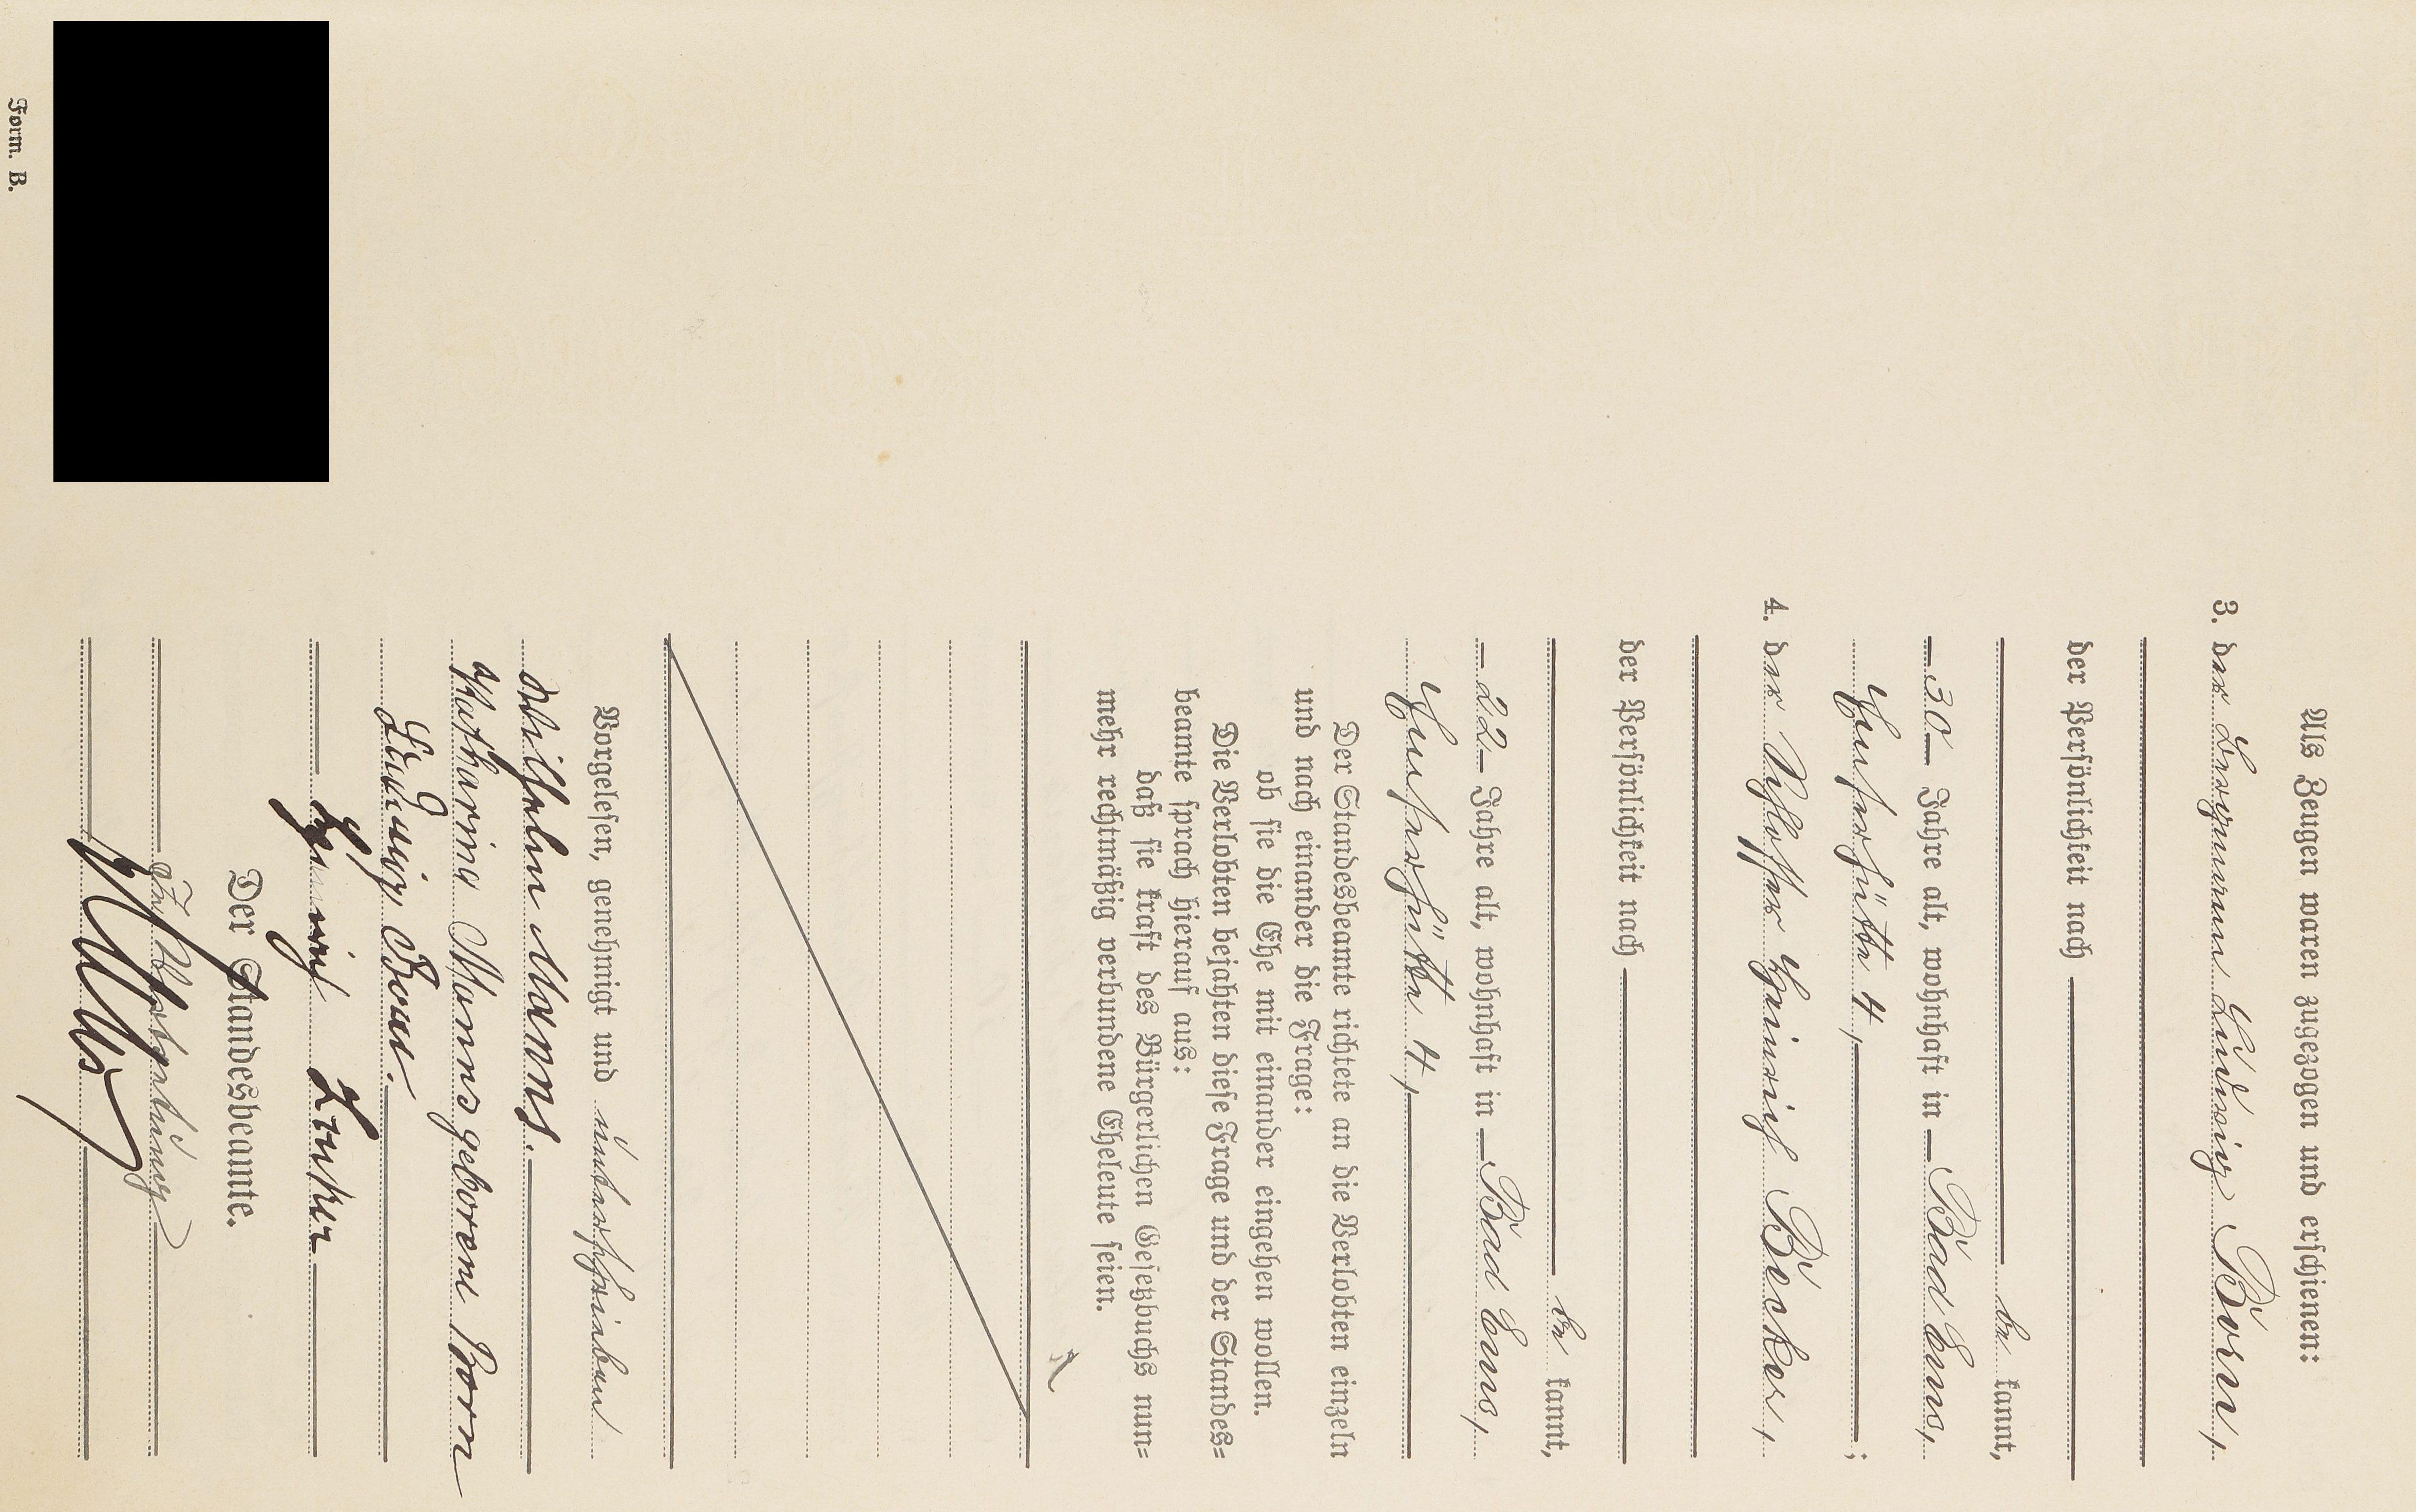 Als Zeugen waren zugezogen und erschienen:
3. der Bergmann Ludwig Born,
der Persönlichkeit nach
be kannt,
30 Jahre alt, wohnhaft in Bad Ems,
Hüserhütte 4, ;
4. der Schlosser Heinrich Becker,
der Persönlichkeit nach
be kannt,
22 Jahre alt, wohnhaft in Bad Ems,
Hüserhütte 4,
Der Standesbeamte richtete an die Verlobten einzeln
und nach einander die Frage:
ob sie die Ehe mit einander eingehen wollen.
Die Verlobten bejahten diese Frage und der Standes=
beamte sprach hierauf aus:
daß sie kraft des Bürgerlichen Gesetzbuchs nun=
mehr rechtmäßig verbundene Eheleute seien.
Vorgelesen, genehmigt und unterschrieben
Wilhelm Manns.
Katharina Manns geborene Born
Ludwig Born.
Heinrich Becker
Der Standesbeamte.
In Vertretung
Form. B.